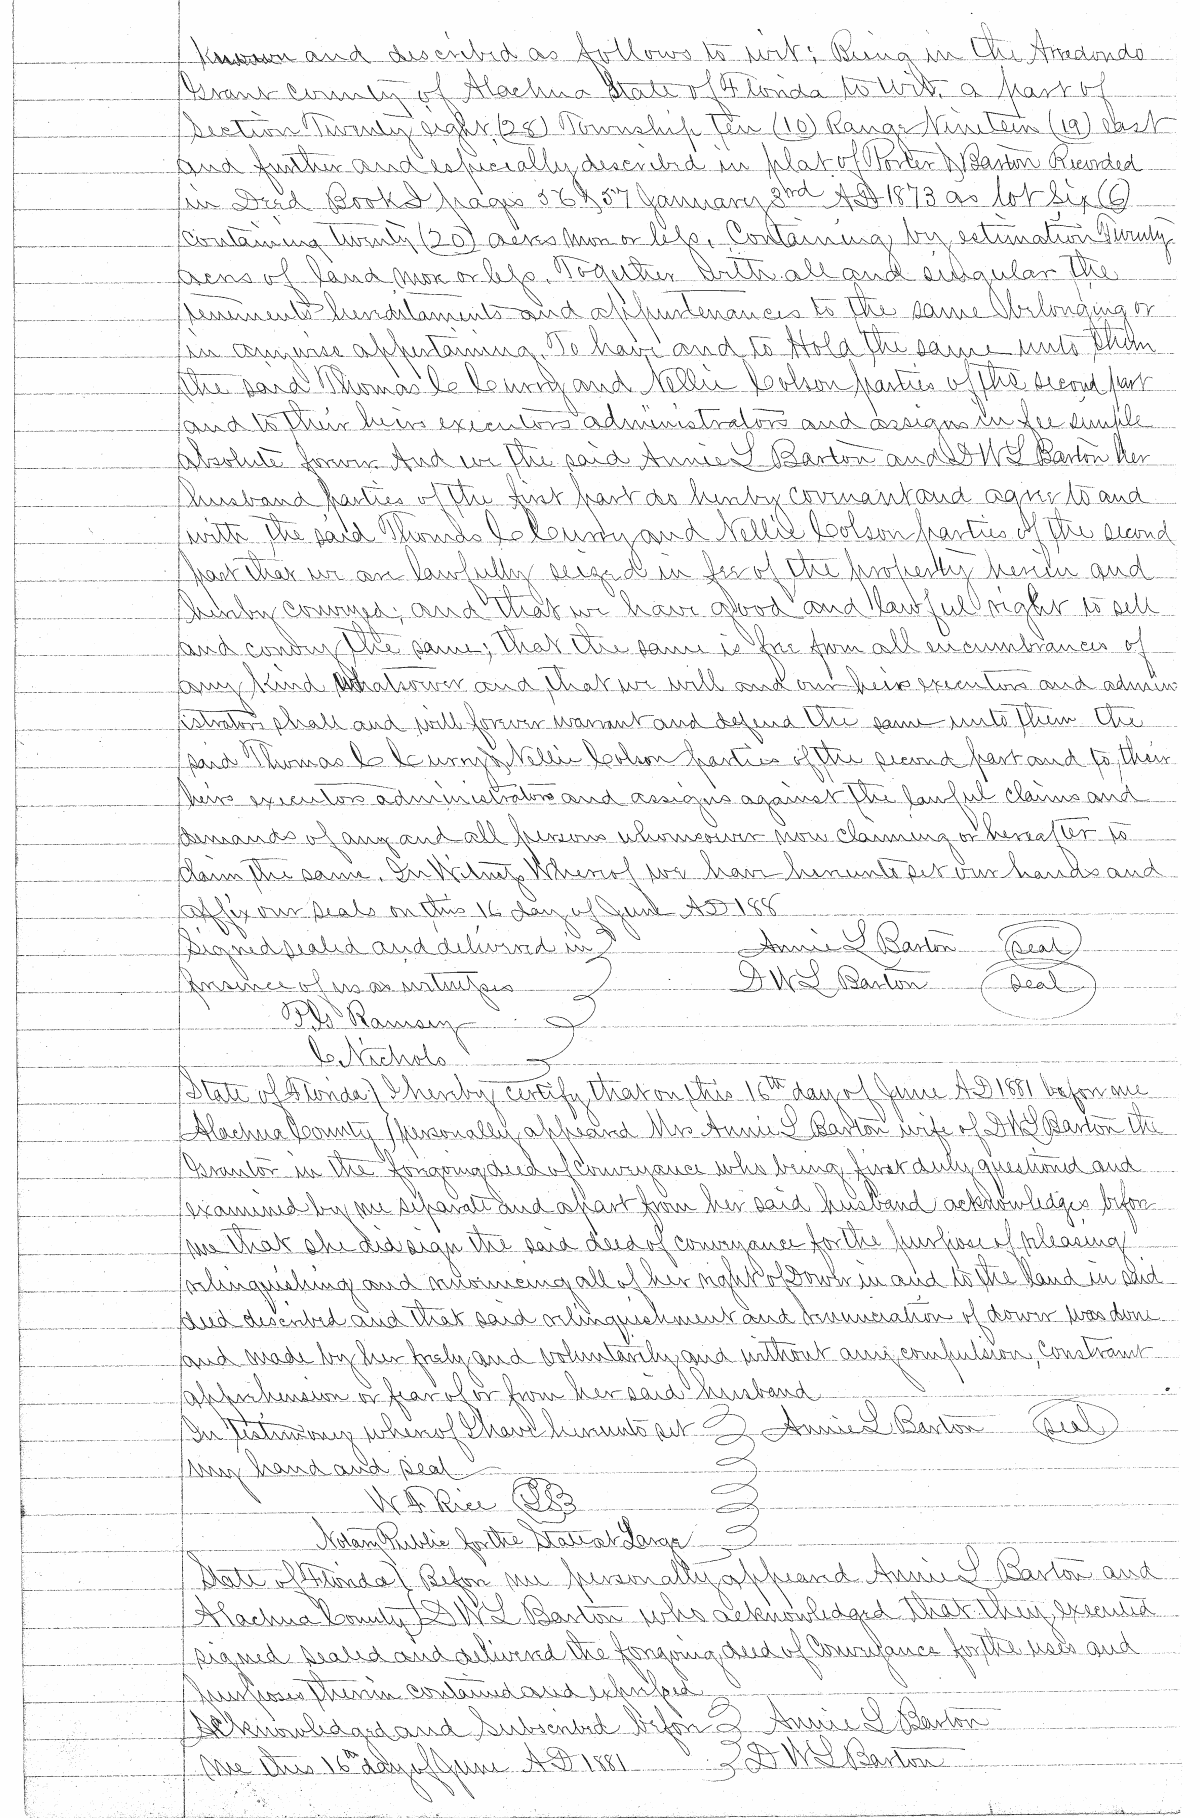 Known and described as follows to wit; Being in the Arredondo
Grant County of Alachua State of Florida to wit, a part of
Section Twenty eight (28) Township Ten (10) Range Nineteen (19) east
and further and especially described in plat of Porter & Barton Recorded
in Deed Book I pages 56 & 57 January 3rd AD 1873 as lot Six (6)
Containing Twenty (20) acres more or less. Containing by estimation Twenty
acres of land more or less. Together with all and singular the
tenements hereditaments and appurtenances to the same belonging or
in anywise appertaining. To have and to Hold the same unto them
the said Thomas C Curry and Nellie Colson parties of the second part
and to their heirs executors administrators and assigns in fee simple
absolute forever. And we the said Annie L Barton and D W L Barton her
husband parties of the first part do hereby covenant and agree to and
with the said Thomas C Curry and Nellie Colson parties of the second
part that we are lawfully seized in fee of the property herein and
hereby conveyed; and that we have good and lawful right to sell
and convey the same; that the same is free from all encumbrances of
any kind Whatsoever and that we will and our heirs executors and admin
istrators shall and will forever warrant and defend the same unto them the
said Thomas C Curry & Nellie Colson parties of the second part and to their
heirs executors administrators and assigns against the lawful claims and
demands of any and all persons whomsoever now claiming or hereafter to
claim the same. In Witness Whereof we have hereunto set our hands and
affix our seals on this 16 day of June AD 188
Signed sealed and delivered in Annie L Barton seal
presence of us as witnesses D W L Barton seal
Ramsey
C Nichols
State of Florida } I hereby certify, that on this 16th day of June AD 1881 before me
Alachua County } personally appeared Mrs Annie L Barton wife of D W L Barton the
Grantor in the forgoing deed of Conveyance who being first duly questioned and
examined by me separate and apart from her said husband acknowledges before
me that she did sign the said deed of conveyance for the purpose of releasing
relinquishing and renouncing all of her right of Dower in and to the land in said
deed described and that said relinquishment and renunciation of dower was done
and made by her freely and voluntarily and without any compulsion, constraint
apprehension or fear of or from her said husband
In Testimony whereof I have hereunto set Annie L Barton seal
my hand and seal
Rice
Notary Public for the State at Large
State of Florida } Before me personally appeared Annie L Barton and
Alachua County } D W L Barton who acknowledged that they executed
signed sealed and delivered the forgoing deed of Conveyance for the uses and
purposes therein contained and
Acknowledged and Subscribed before Annie L Barton
me this 16th day of June AD 1881 D W L Barton